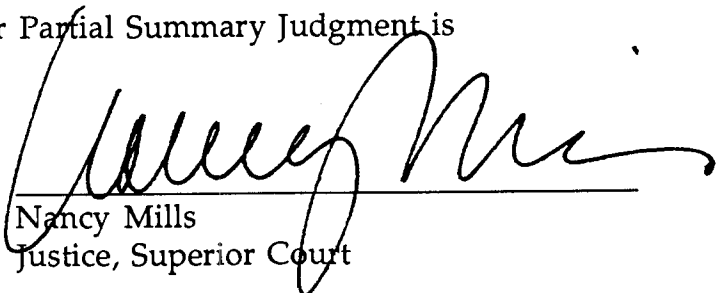 r Partial Summary Judgment is
Nancy Mills
Nancy Mills
Justice, Superior Court